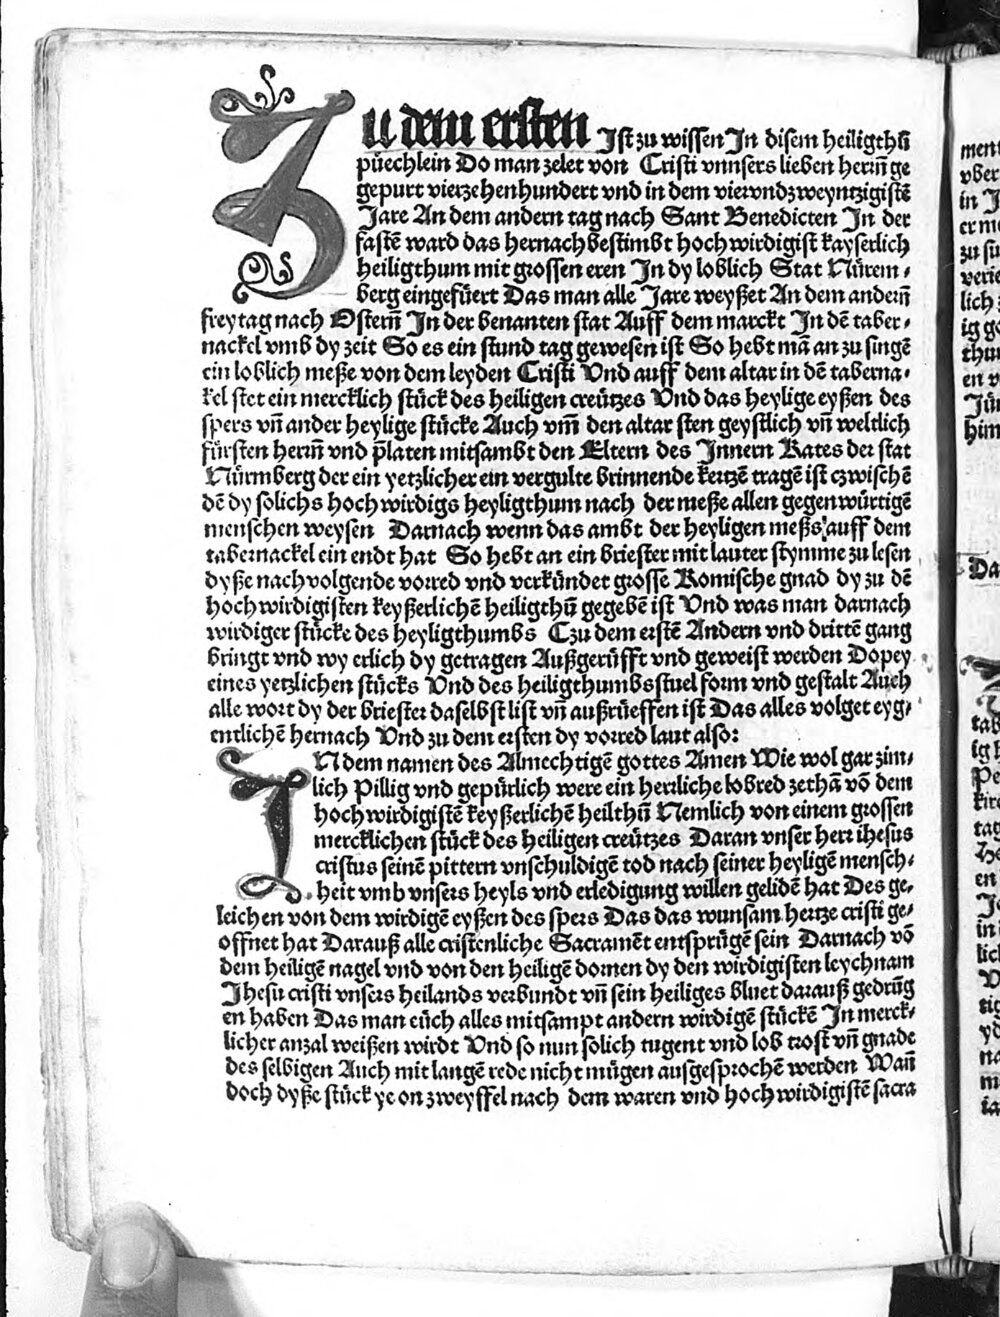 Zu dem ersten Ist zu wissen In disem heiligthū
püechlein Do man zelet von Cristi vnnsers lieben herrn̄ ge
gepurt vierzehenhundert vnd in dem viervndzweyntzigistē
Jare An dem andern tag nach Sant Benedicten In der
fastē ward das hernachbestimbt hochwirdigist kayserlich
heiligthum mit grossen eren In dy loblich Stat Nürem⸗
berg eingefüert Das man alle Jare weyßet An dem andern̄
freytag nach Ostern̄ In der benanten stat Auff dem marckt In dē taber⸗
nackel vmb dy zeit So es ein stund tag gewesen ist So hebt mā an zu singē
ein loblich meße von dem leyden Cristi Vnd auff dem altar in dē taberna⸗
kel stet ein mercklich stück des heiligen creützes Vnd das heylige eyßen des
spers vn̄ ander heylige stücke Auch vm̄ den altar sten geystlich vn̄ weltlich
fürsten herrn̄ vnd p̄laten mitsambt den Eltern des Innern Rates der stat
Nürmberg der ein yetzlicher ein vergulte brinnende kertzē tragē ist czwischē
dē dy solichs hochwirdigs heyligthum nach der meße allen gegenwürtigē
menschen weysen Darnach wenn das ambt der heyligen meßs auff dem
tabernackel ein endt hat So hebt an ein briester mit lauter stymme zu lesen
dyße nachvolgende vorred vnd verkündet grosse Romische gnad dy zu dē
hochwirdigisten keyßerlichē heiligthū gegebē ist Vnd was man darnach
wirdiger stücke des heyligthumbs Czu dem erstē Andern vnd drittē gang
bringt vnd wy erlich dy getragen Außgerüfft vnd geweist werden Dopey
eines yetzlichen stücks Vnd des heiligthumbsstuel form vnd gestalt Auch
alle wort dy der briester daselbst list vn̄ außrüeffen ist Das alles volget eyg⸗
entlichē hernach Vnd zu dem ersten dy vorred laut also:
IN dem namen des Almechtigē gottes Amen Wie wol gar zim⸗
lich Pillig vnd gepürlich were ein herrliche lobred zethā vō dem
hochwirdigistē keyßerlichē heilthū Nemlich von einem grossen
mercklichen stück des heiligen creützes Daran vnser herr ihesus
cristus seinē pittern vnschuldigē tod nach seiner heyligē mensch⸗
heit vmb vnsers heyls vnd erledigung willen gelidē hat Des ge⸗
leichen von dem wirdigē eyßen des spers Das das wunsam hertze cristi ge⸗
offnet hat Darauß alle cristenliche Sacramēt entsprūgē sein Darnach vō
dem heiligē nagel vnd von den heiligē dornen dy den wirdigisten leychnam
Ihesu cristi vnsers heilands verbundt vn̄ sein heiliges bluet darauß gedrūg
en haben Das man eüch alles mitsampt andern wirdigē stückē In merck⸗
licher anzal weißen wirdt Vnd so nun solich tugent vnd lob trost vn̄ gnade
des selbigen Auch mit langē rede nicht mügen ausgesprochē werden Wan̄
doch dyße stück ye on zweyffel nach dem waren vnd hochwirdigistē sacra